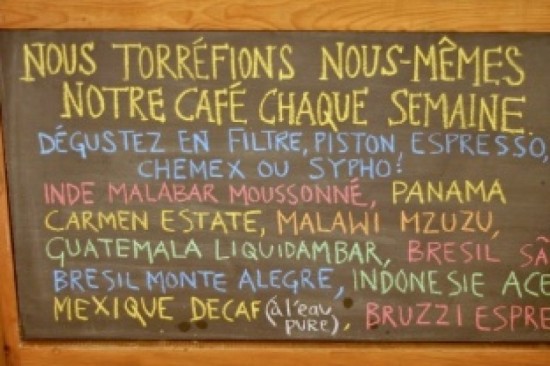 NOUS TORRÉFIONS NOUS-MÊMES
NOTRE CAFÉ CHAQUE SEMAINE.
DÉGUSTEZ EN FILTRE, PISTON, ESPRESSO,
CHEMEX OU SYPHO!
INDE MALABAR MOUSSONNÉ, PANAMA
CARMEN ESTATE, MALAWI MZUZU,
GUATEMALA LIQUIDAMBAR, BRESIL SÃ
BRESIL MONTE ALEGRE, INDONESIE ACE
MEXIQUE DECAF (à l'eau pure), BRUZZI ESPRE